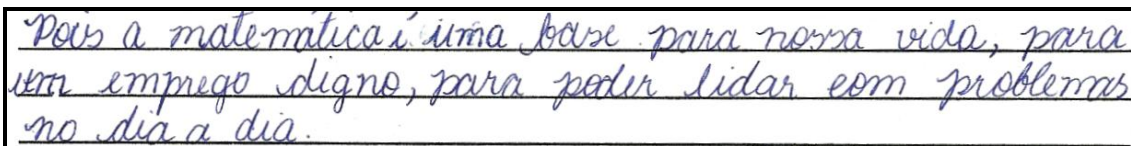 Pois a matemática é uma base para nossa vida, para
um emprego digno, para poder lidar com problemas
no dia a dia.